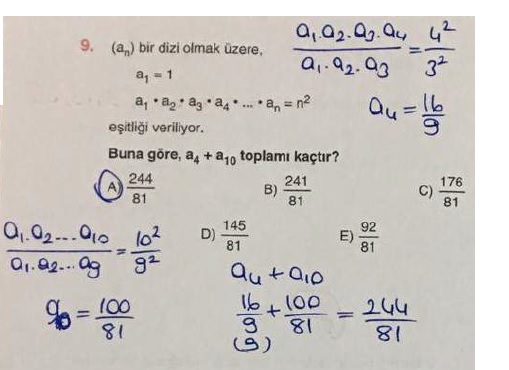 9. (aₙ) bir dizi olmak üzere,
a₁ = 1
a₁ • a₂ • a₃ • a₄ • ... • aₙ = n²
eşitliği veriliyor.
Buna göre, a₄ + a₁₀ toplamı kaçtır?
A) 244/81 B) 241/81 C) 176/81
D) 145/81 E) 92/81
a₁.a₂.a₃.a₄ / a₁.a₂.a₃ = 4²/3²
a₄ = 16/9
a₁.a₂...a₁₀ / a₁.a₂...a₉ = 10²/9²
= 100/81
a₄ + a₁₀
16/9 + 100/81 = 244/81
(9)